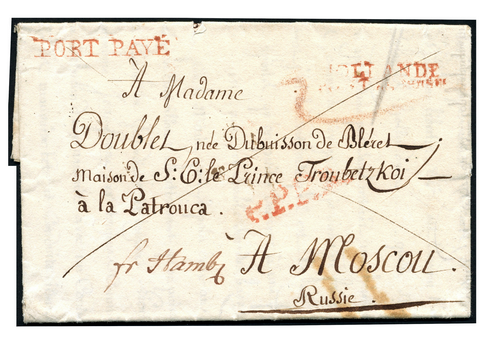 PORT PAYÉ
HOLLANDE
À Madame
Doublet née Dubuisson de Bléret
maison de S: E: le Prince Troubetzkoi
à la Patrouca.
P.P.
fr Hambg
À Moscou.
Russie.